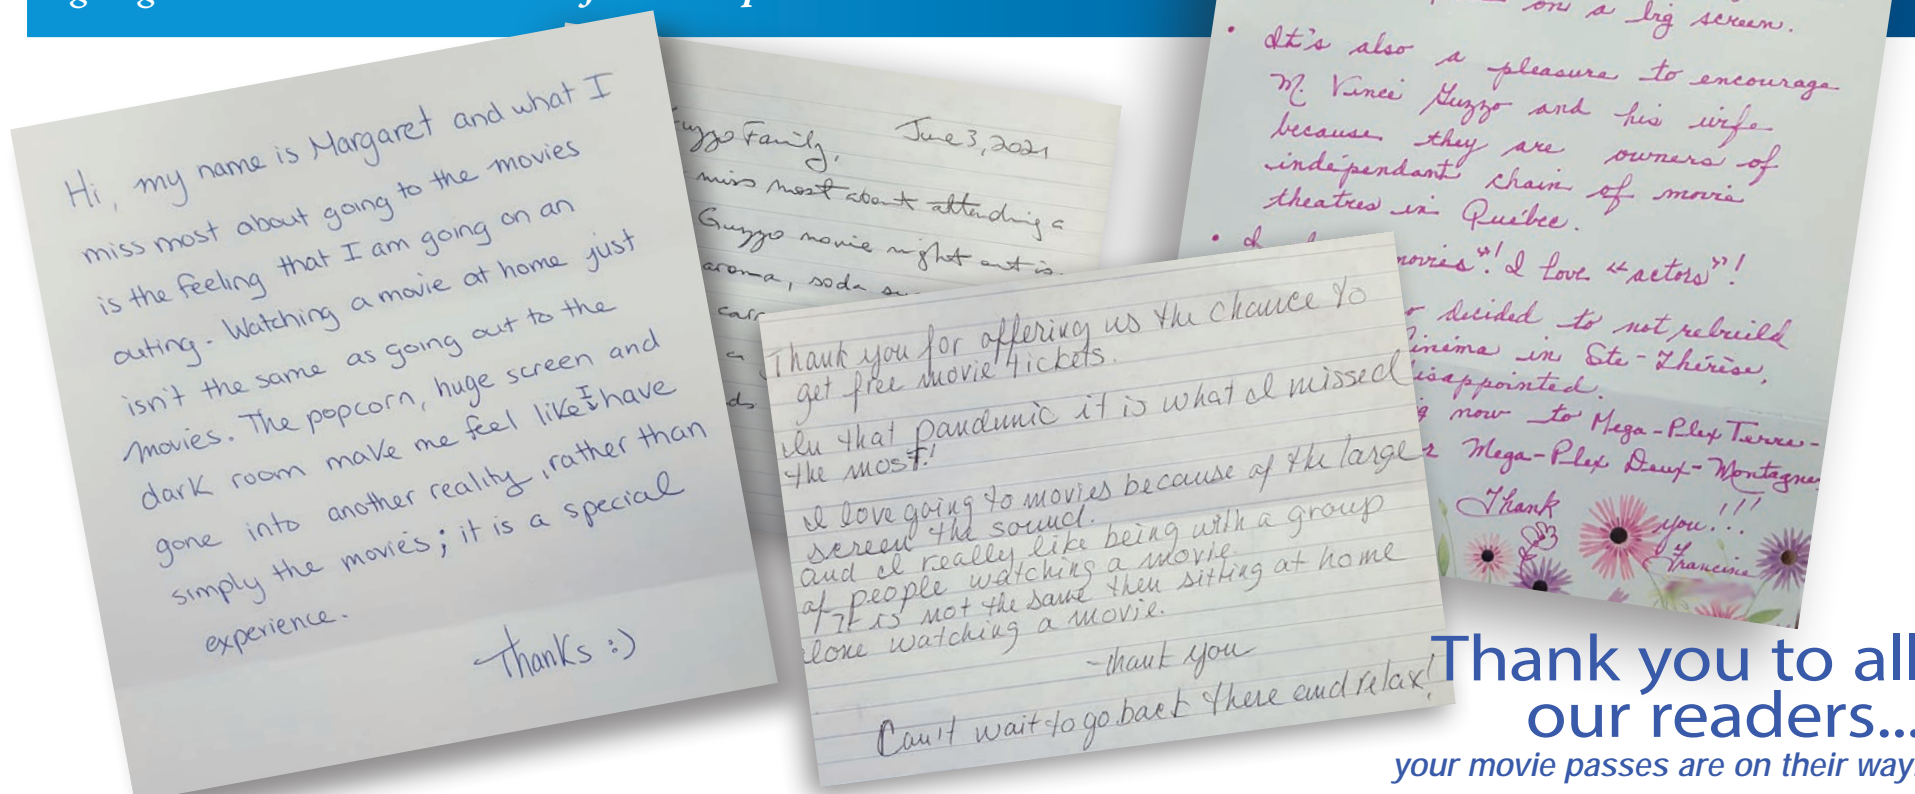 Hi, my name is Margaret and what I
miss most about going to the movies
is the feeling that I am going on an
outing. Watching a movie at home just
isn't the same as going out to the
movies. The popcorn, huge screen and
dark room make me feel like I have
gone into another reality, rather than
simply the movies; it is a special
experience.
Thanks :)
June 3, 2021
Family,
miss most about attending a
Guzzo movie night out is
aroma, soda
Thank you for offering us the chance to
get free movie tickets.
In that pandunic it is what I missed
the most!
I love going to movies because of the large
screen the sound.
and I really like being with a group
of people watching a movie.
It is not the same then sitting at home
lone watching a movie.
-thank you
Can't wait to go back there and relax!
on a big screen.
• It's also a pleasure to encourage
M. Vince Guzzo and his wife
because they are owners of
indépendant chain of movie
theatres in Québec.
• I movies"! I love "actors"!
decided to not rebuild
in Ste-Thérèse,
now to Mega-Plex Terre-
Mega-Plex Deux-Montagnes
Thank you...!!!
Francine
Thank you to all
our readers...
your movie passes are on their way.